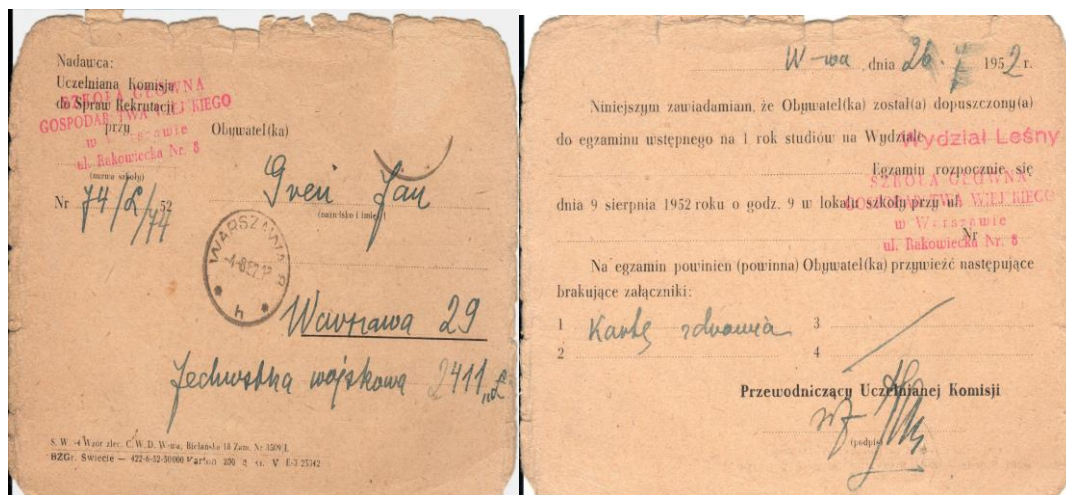 Nadawca:
Uczelniana Komisja
do Spraw Rekrutacji
przy
SZKOŁA GŁÓWNA
GOSPODARSTWA WIEJSKIEGO
w Warszawie
ul. Rakowiecka Nr. 8
(nazwa szkoły)
Nr 74/L/52
74
Obywatel(ka)
Greń Jan
(nazwisko i imię)
WARSZAWA
Warszawa 29
Jednostka wojskowa 2411
S. W. -4 Wzór zlec. C. W. D. W-wa, Bielańska 18 Zam. Nr
BZGr. Świecie — 422-6-52-50000 Karton 250 g kl. V
W-wa, dnia 26. 1952 r.
Niniejszym zawiadamiam, że Obywatel(ka) został(a) dopuszczony(a)
do egzaminu wstępnego na 1 rok studiów na Wydziale Wydział Leśny
Egzamin rozpocznie się
dnia 9 sierpnia 1952 roku o godz. 9 w lokalu szkoły przy ul.
SZKOŁA GŁÓWNA
GOSPODARSTWA WIEJSKIEGO
w Warszawie
ul. Rakowiecka Nr. 8
Nr
Na egzamin powinien (powinna) Obywatel(ka) przywieźć następujące
brakujące załączniki:
1 Kartę zdrowia 3
2 4
Przewodniczący Uczelnianej Komisji
(podpis)